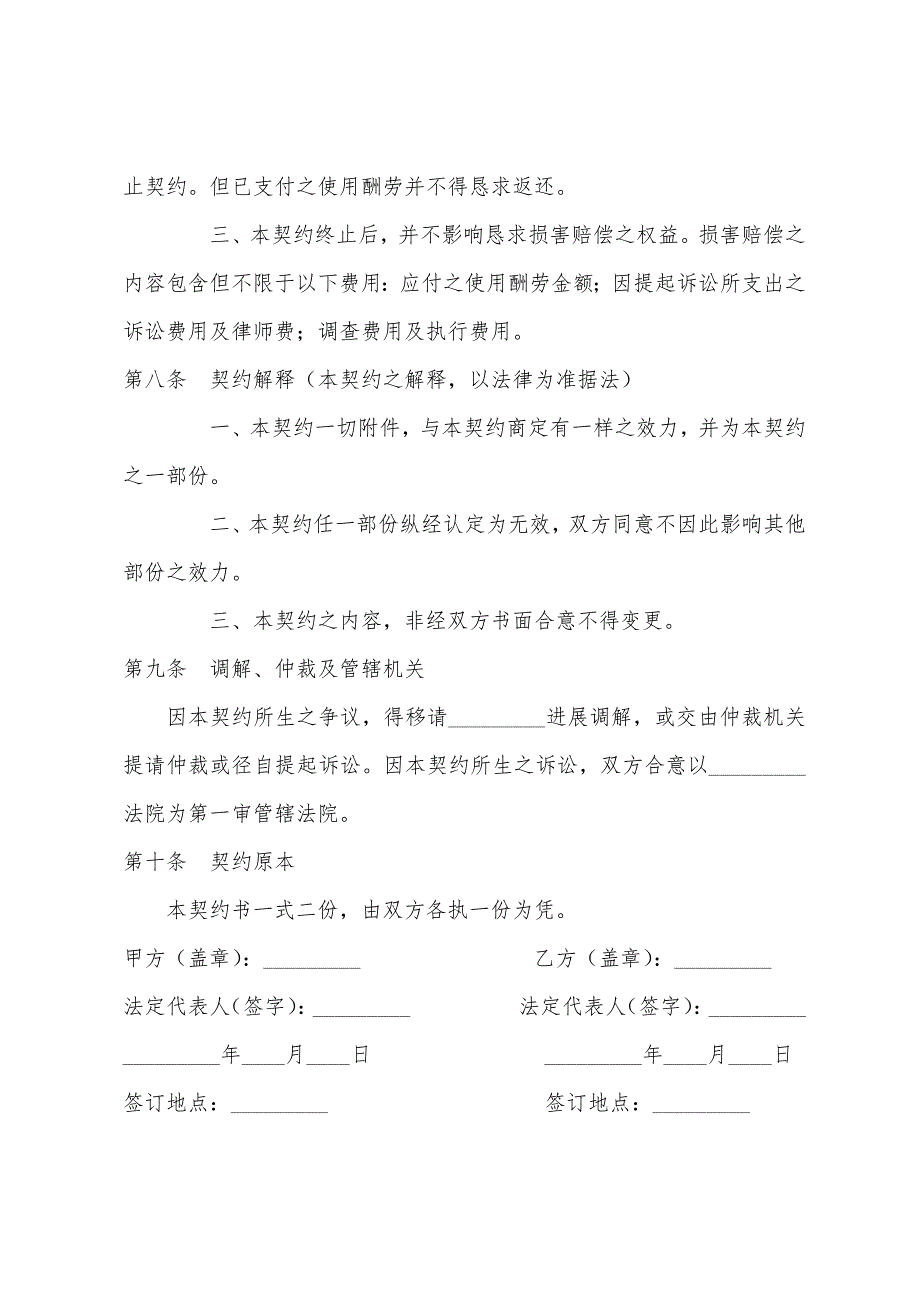 止契约。但已支付之使用酬劳并不得恳求返还。
三、本契约终止后，并不影响恳求损害赔偿之权益。损害赔偿之
内容包含但不限于以下费用：应付之使用酬劳金额；因提起诉讼所支出之
诉讼费用及律师费；调查费用及执行费用。
第八条　契约解释（本契约之解释，以法律为准据法）
一、本契约一切附件，与本契约商定有一样之效力，并为本契约
之一部份。
二、本契约任一部份纵经认定为无效，双方同意不因此影响其他
部份之效力。
三、本契约之内容，非经双方书面合意不得变更。
第九条　调解、仲裁及管辖机关
因本契约所生之争议，得移请_________进展调解，或交由仲裁机关
提请仲裁或径自提起诉讼。因本契约所生之诉讼，双方合意以_________
法院为第一审管辖法院。
第十条　契约原本
本契约书一式二份，由双方各执一份为凭。
甲方（盖章）：_________　　　　　　　　乙方（盖章）：_________
法定代表人（签字）：_________　　　　　法定代表人（签字）：_________
_________年____月____日　　　　　　　　_________年____月____日
签订地点：_________　　　　　　　　　　签订地点：_________